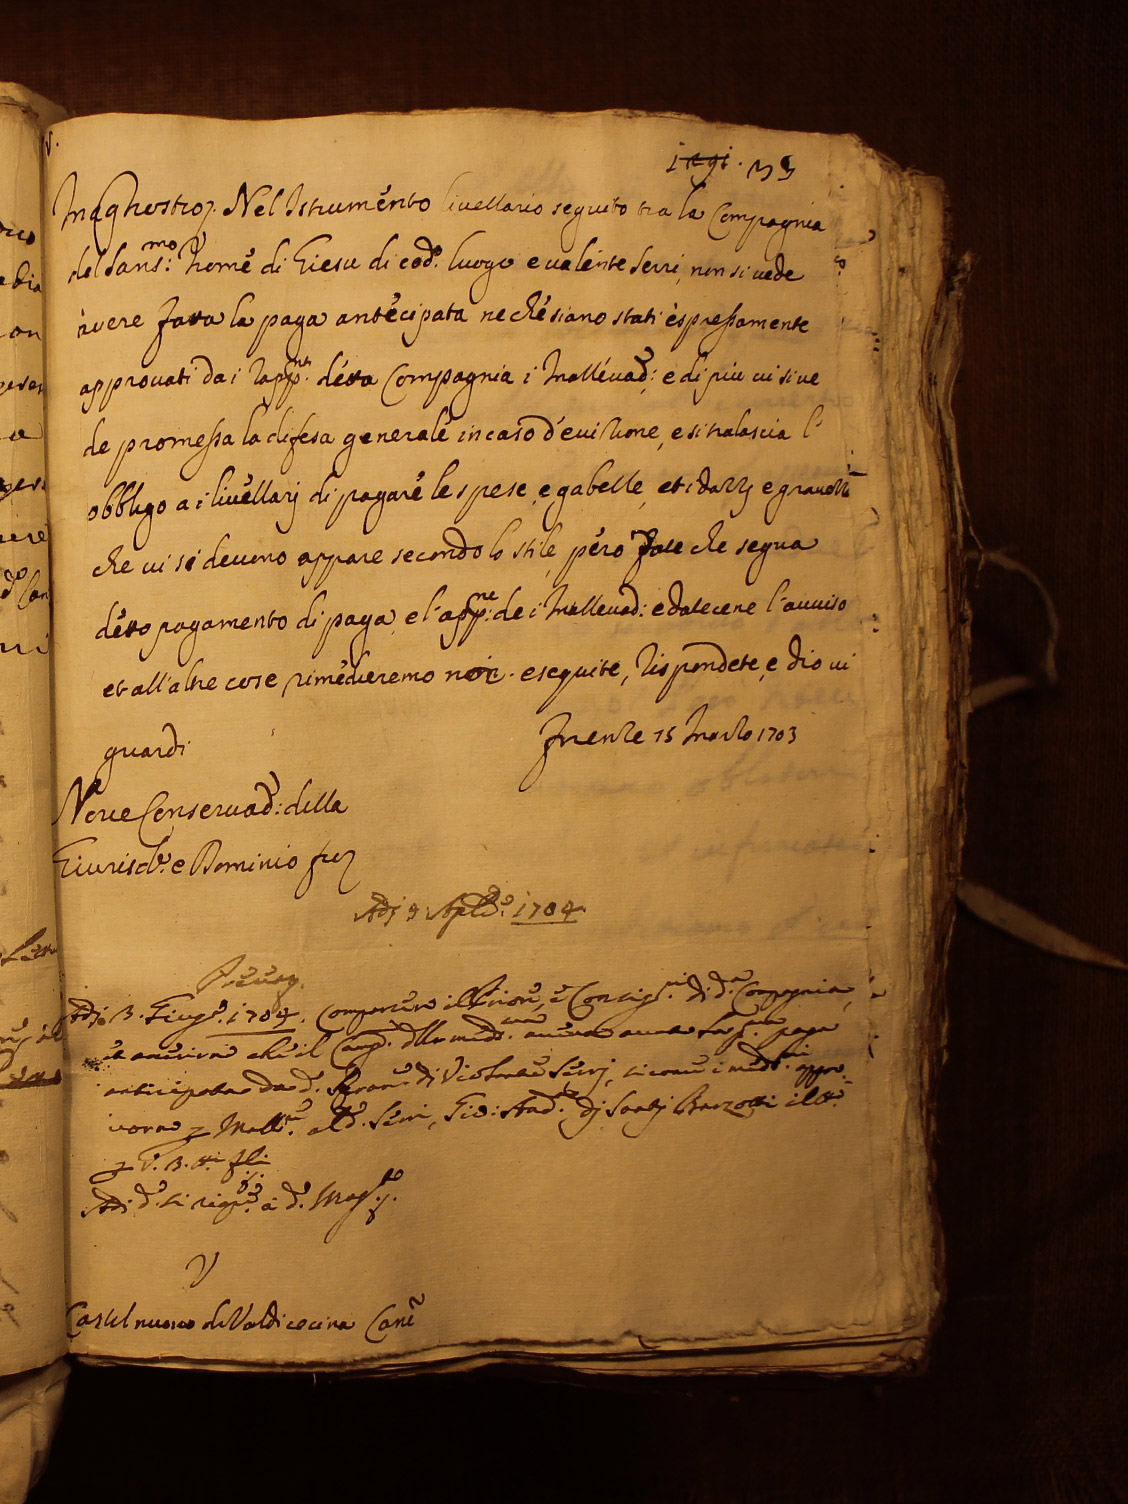 33
Nel Istrumento livellario seguito tra la Compagnia
del Sans:mo Nome di Giesu di cod:o luogo e valente Serri, non si vede
avere fatta la paga antecipata ne che siano stati espressamente
approvati da i Rapp:nti detta Compagnia i Mallevad:i e di piu vi si ve
de promessa la difesa generale in caso d'evizione, e si tralascia l'
obbligo a i livellarij di pagare le spese, e gabelle, et i dazzj e
che vi si devono secondo lo stile, pero fate che segua
detto pagamento di paga, e l'app:ne de i Mallevad:i e datecene l'avviso
et all'altre cose rimedieremo noi. eseguite, Rispondete, e Dio vi
guardi
Firenze 15 Marzo 1703
Nove Conservad:i della
Giurisd:e e Dominio fior
Adj 9 Aple 1704
Adj 3. Giug:o 1704. Comparsero il Priore, e Consig:ri di d:a Compagnia,
che il aveva avuta la paga
anticipata da d:o di Violante Serrj, si come i med:mi appro-
vorno p Mall:re al d:o Serri, Gio: And:a dj Santj Barzotti
Adi d:o si a d:o Mag:to
V
Castel nuovo di Valdicecina Canc